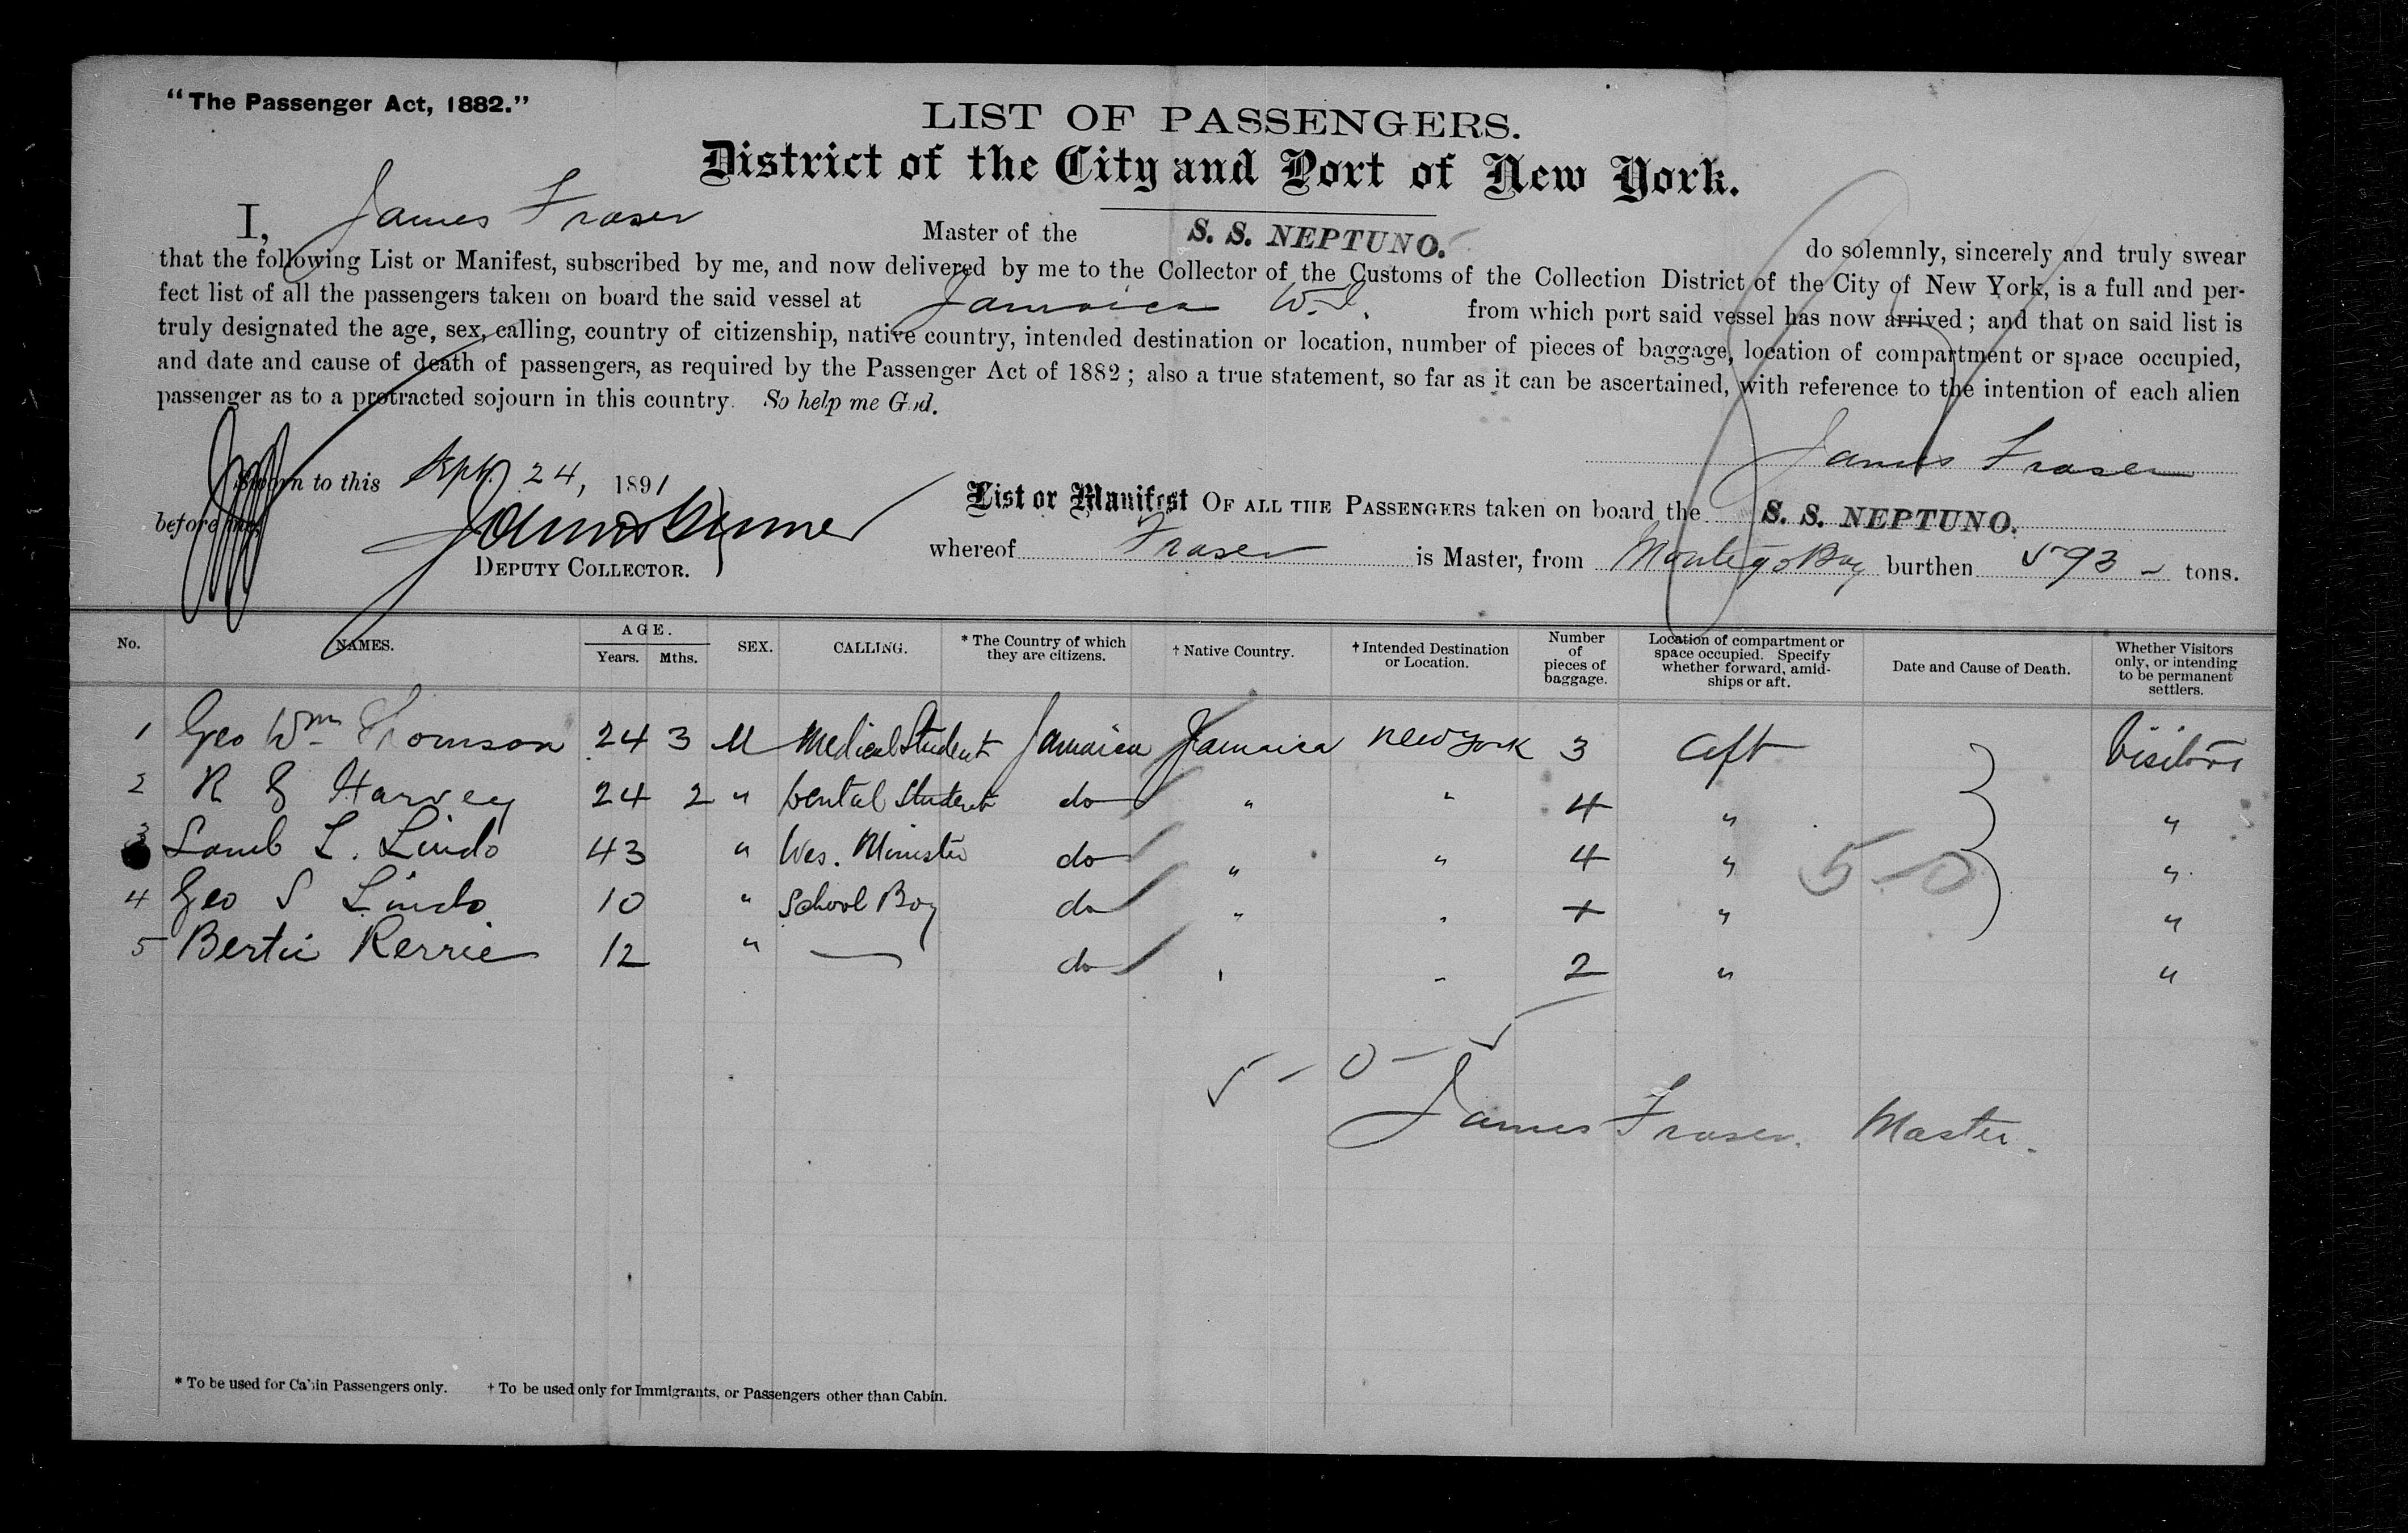 "The Passenger Act, 1882."
LIST OF PASSENGERS.
District of the City and Port of New York.
I, James Fraser Master of the S. S. NEPTUNO. do solemnly, sincerely and truly swear
that the following List or Manifest, subscribed by me, and now delivered by me to the Collector of the Customs of the Collection District of the City of New York, is a full and per-
fect list of all the passengers taken on board the said vessel at Jamaica W.I. from which port said vessel has now arrived; and that on said list is
truly designated the age, sex, calling, country of citizenship, native country, intended destination or location, number of pieces of baggage, location of compartment or space occupied,
and date and cause of death of passengers, as required by the Passenger Act of 1882; also a true statement, so far as it can be ascertained, with reference to the intention of each alien
passenger as to a protracted sojourn in this country. So help me God.
James Fraser
Sworn to this Sept. 24, 1891
before me,
DEPUTY COLLECTOR.
List or Manifest OF ALL THE PASSENGERS taken on board the S. S. NEPTUNO.
whereof Fraser is Master, from Montego Bay burthen 593 - tons.
No. NAMES. AGE. Years. Mths. SEX. CALLING. * The Country of which they are citizens. † Native Country. † Intended Destination or Location. Number of pieces of baggage. Location of compartment or space occupied. Specify whether forward, amid-ships or aft. Date and Cause of Death. Whether Visitors only, or intending to be permanent settlers.
1 Geo Wm Thomson 24 3 M Medical Student Jamaica Jamaica New York 3 Aft Visitors
2 R Harvey 24 2 " Dental Student do " " 4 " "
3 L. Lindo 43 " Wes. Minister do " " 4 " "
4 Geo S Lindo 10 " School Boy do " " + " "
5 Bertie Kerrie 12 " — do " " 2 " "
5-0
5-0-
James Fraser. Master.
* To be used for Cabin Passengers only. † To be used only for Immigrants, or Passengers other than Cabin.